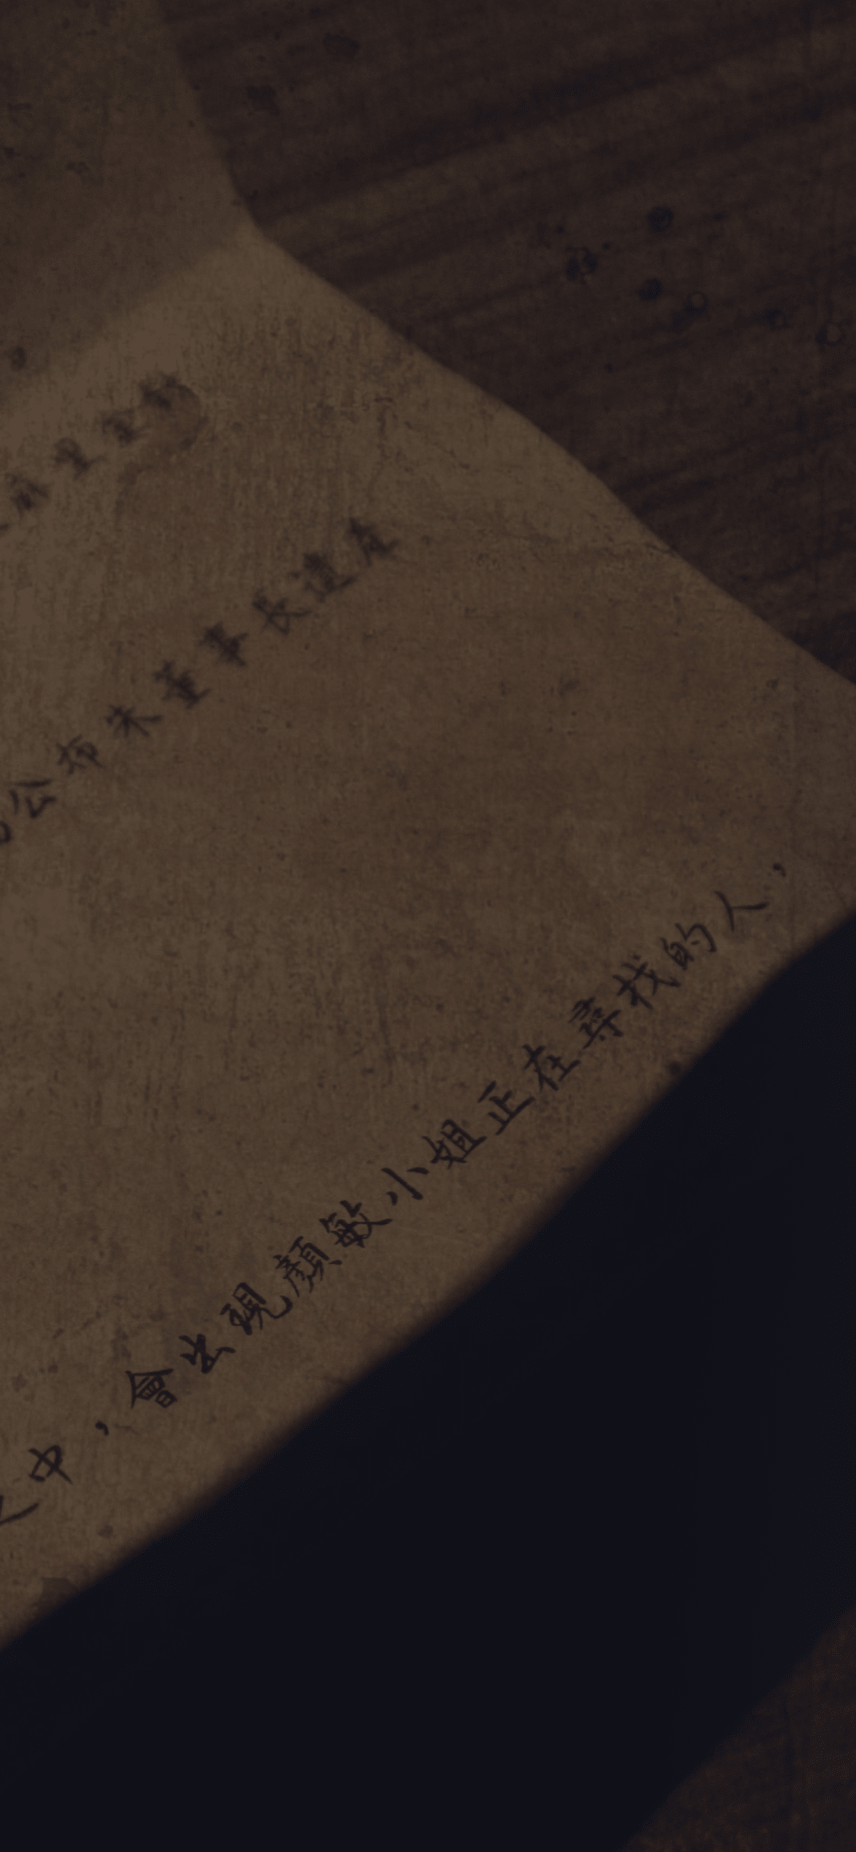 麻里全
公布朱董事長遺產
之中，會出現顏敏小姐正在尋找的人，